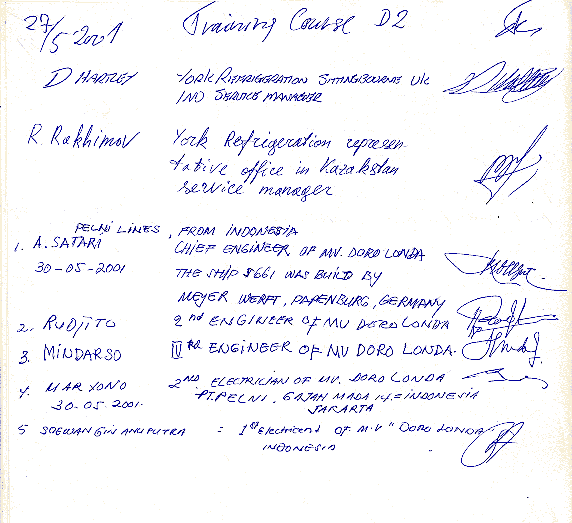 27/5-2001 Training Course D2
D HARTLEY YORK REFRIGERATION SITTINGBOURNE UK
IND SERVICE MANAGER
R. Rakhimov York Refrigeration represen-
tative office in Kazakstan
service manager
PELNI LINES, FROM INDONESIA
1. A. SATARI CHIEF ENGINEER OF MV. DORO LONDA
30-05-2001 THE SHIP S661 WAS BUILD BY
MEYER WERFT, PAPENBURG, GERMANY
2. RUDJITO 2nd ENGINEER OF MV DORO LONDA
3. MINDARSO ENGINEER OF MV DORO LONDA.
4. MARYONO 2ND ELECTRICIAN OF MV. DORO LONDA
30.05.2001. PT.PELNI. GAJAH MADA 14 = INDONESIA
JAKARTA
5 SOEWANGIN ANUPUTRA = 1st Electricent OF M.V "DORO LONDA
INDONESIA